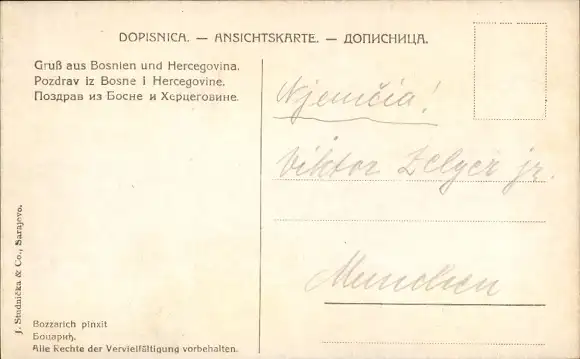 DOPISNICA. — ANSICHTSKARTE. — ДОПИСНИЦА.
Gruß aus Bosnien und Hercegovina.
Pozdrav iz Bosne i Hercegovine.
Поздрав из Босне и Херцеговине.
Njemčia!
Viktor Zelger jr.
Munchen
J. Studnička & Co., Sarajevo.
Bozzarich pinxit
Боцарић.
Alle Rechte der Vervielfältigung vorbehalten.